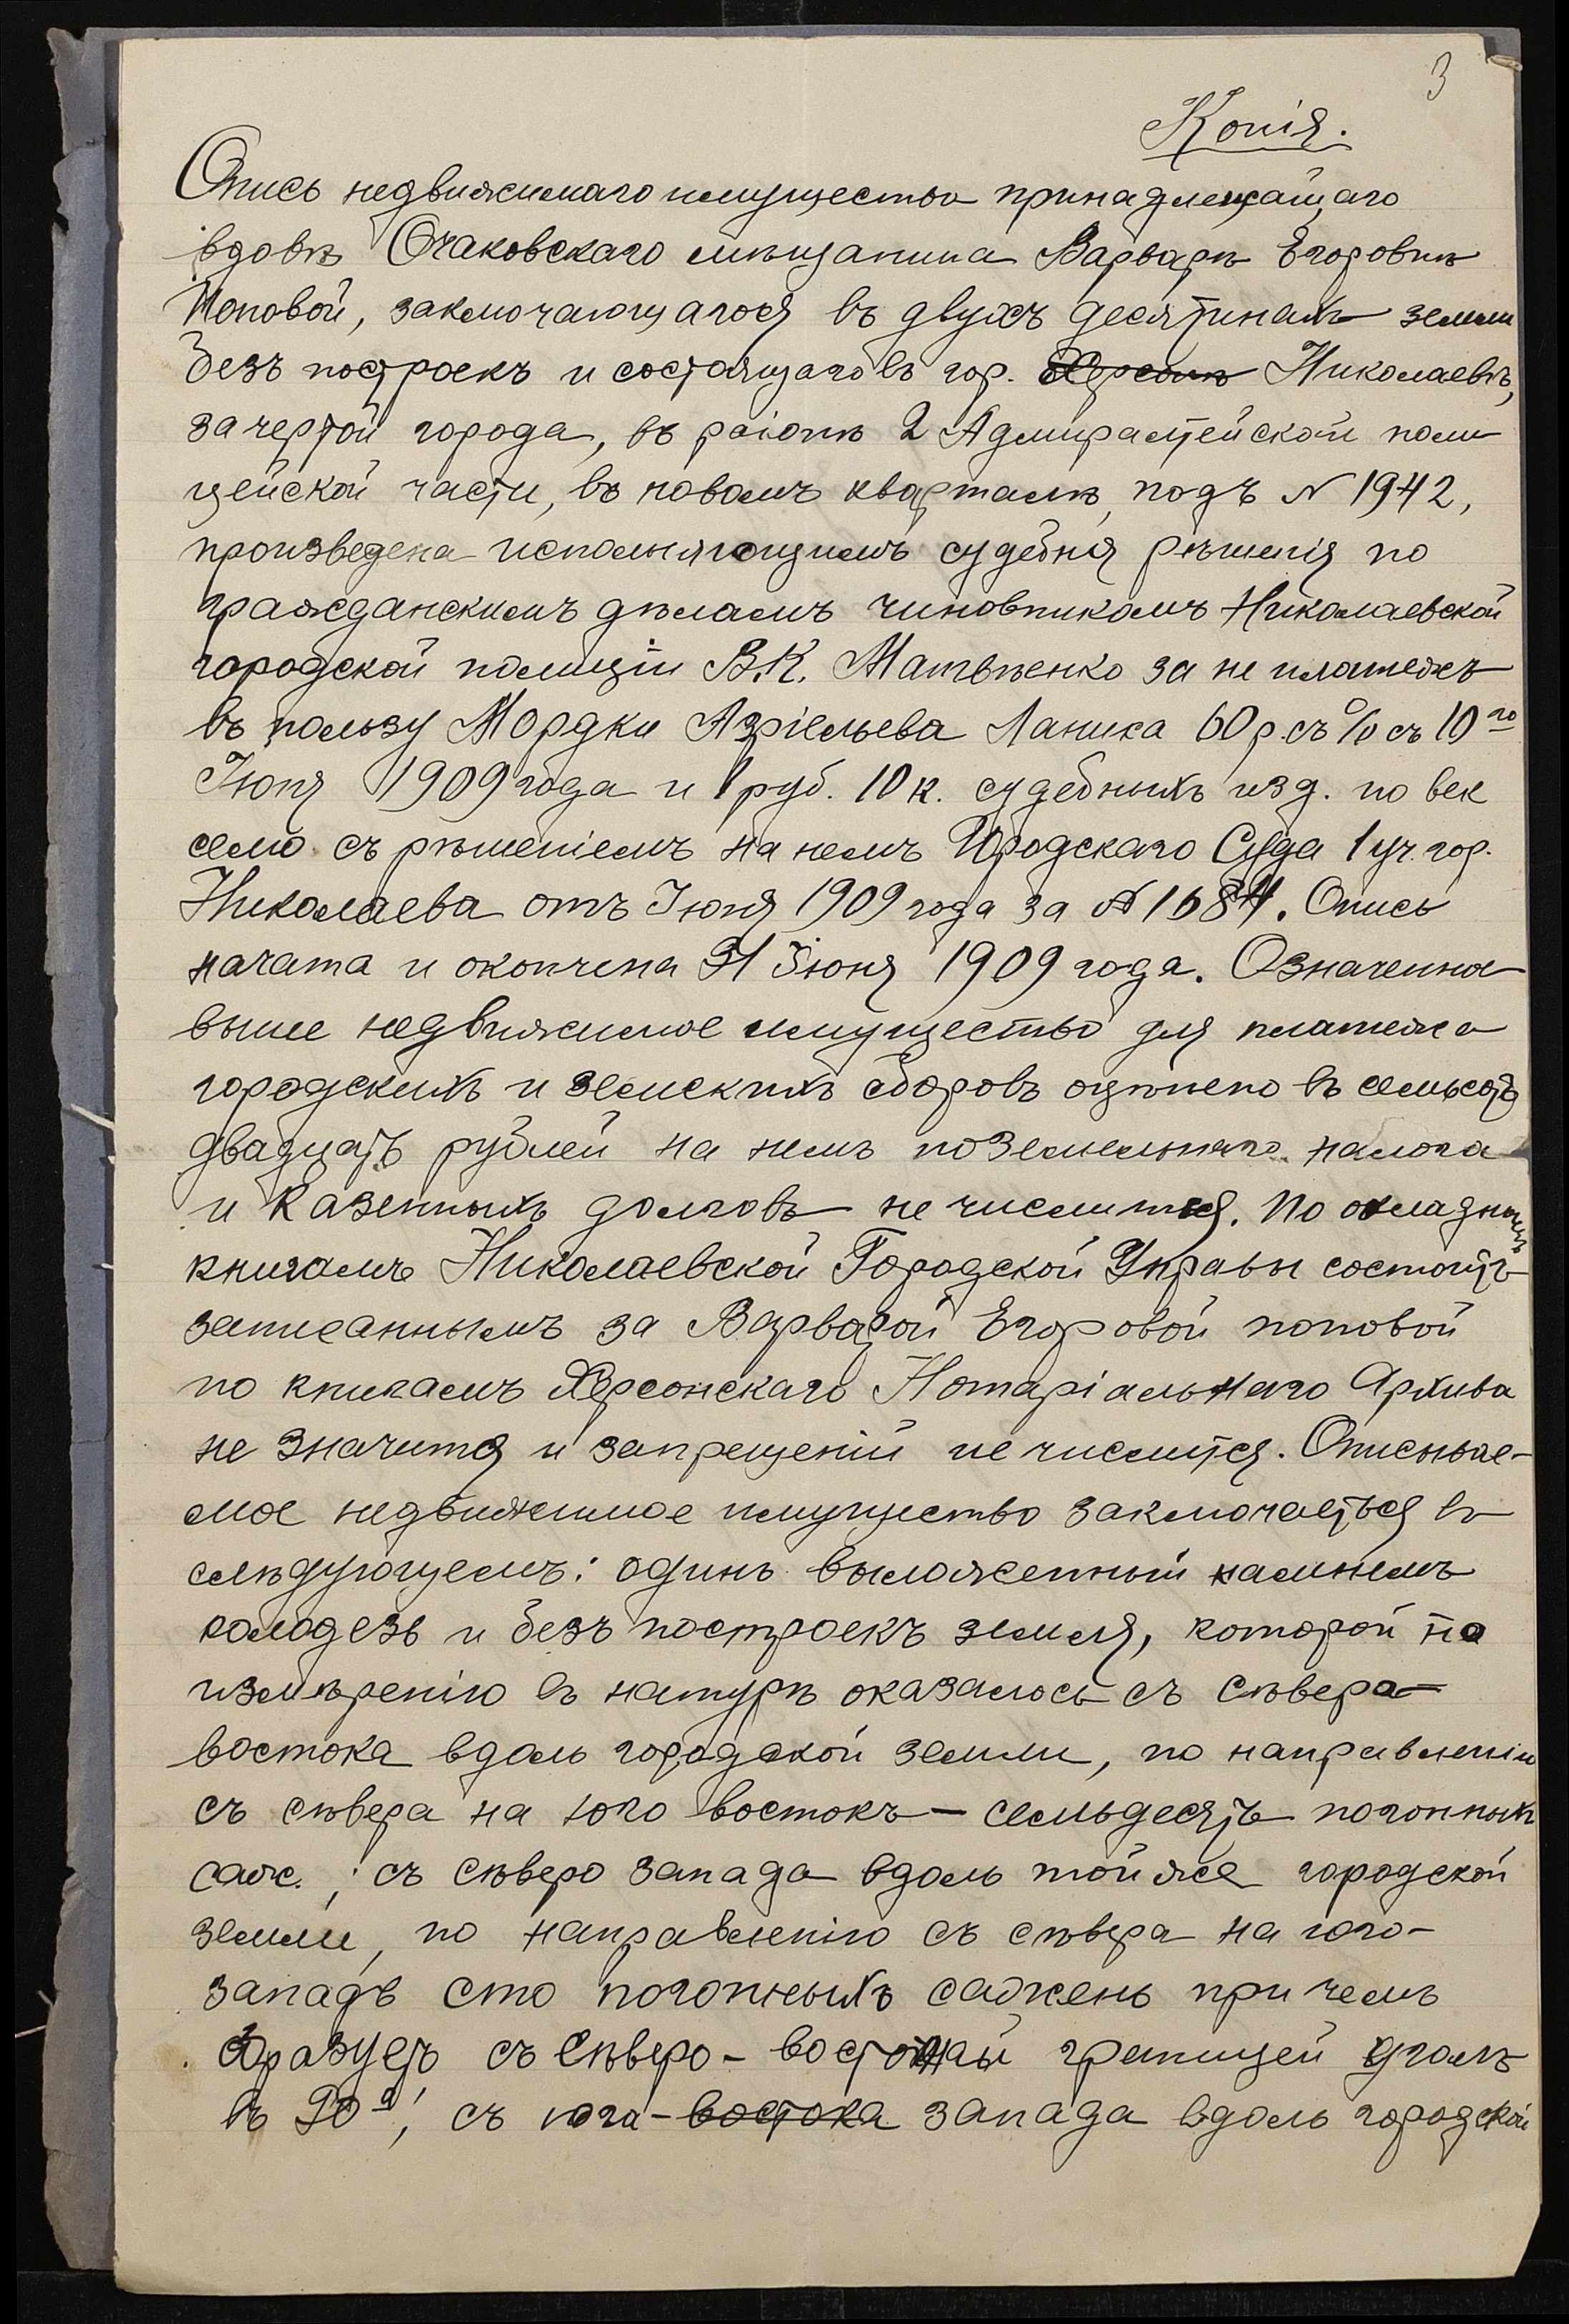 3
Копія.
Опись недвижимаго имущества принадлежащаго
вдовѣ Очаковскаго мѣщанина Варварѣ Егоровнѣ
Поповой, заключающагося въ двухъ десятинахъ земли
безъ построекъ и состоящаго въ гор. Херсонѣ Николаевѣ,
за чертой города, въ раіонѣ 2 Адмиралтейской поли
цейской части, въ новомъ кварталѣ, подъ № 1942,
произведена исполняющимъ судебныя рѣшенія по
гражданскимъ дѣламъ чиновникомъ Николаевской
городской полиціи В.К. Матвѣенко за не платежъ
въ пользу Мордки Азріельева Ланиса 60 р. съ % съ 10го
Іюня 1909 года и 1 руб. 10 к. судебныхъ изд. по век
селю съ рѣшеніемъ на немъ Городского Суда 1 уч. гор.
Николаева отъ Іюня 1909 года за № 1684. Опись
начата и окончена 31 Іюня 1909 года. Означенное
выше недвижимое имущество для платежа
городскихъ и земскихъ сборовъ оцѣнено въ семьсотъ
двадцать рублей на немъ поземельнаго налога
и казенныхъ долговъ не числится. По окладнымъ
книгамъ Николаевской Городской Управы состоитъ
записаннымъ за Варварой Егоровой поповой
по книгамъ Херсонскаго Нотаріальнаго Архива
не значится и запрещеній не числится. Описывае-
мое недвижимое имущество заключаеться въ
слѣдующемъ: одинъ выложенный камнемъ
колодезь и безъ построекъ земля, которой по
измѣренію въ натурѣ оказалось съ сѣвера-
востока вдоль городской земли, по направленію
съ сѣвера на юго востокъ - семьдесятъ погонныхъ
саж.; съ сѣверо запада вдоль той же городской
земли, по направленію съ сѣвера на юго-
западъ сто погонныхъ сажень при чемъ
образуетъ съ сѣверо-восточной границей уголъ
въ 90°; съ юга-востока запада вдоль городской